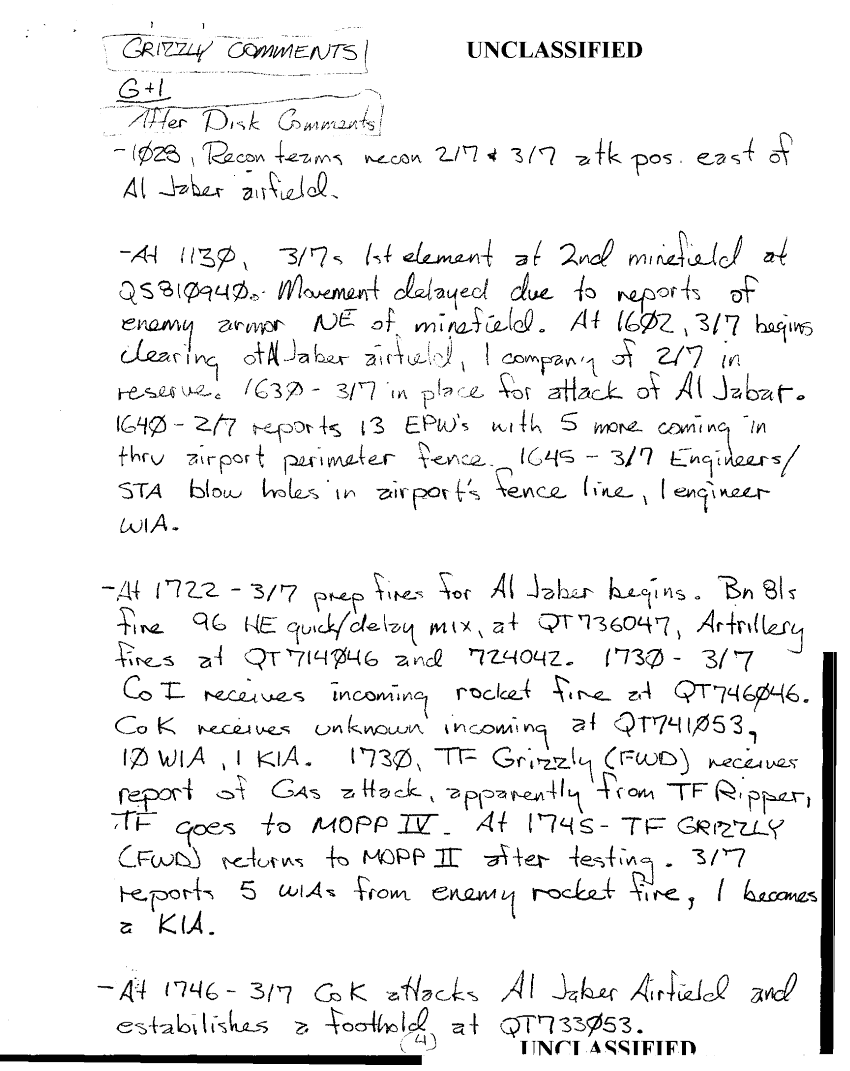 GRIZZLY COMMENTS
UNCLASSIFIED
G+1
After Disk Comments
-1Ø28, Recon teams recon 2/7 & 3/7 atk pos. east of
Al Jaber airfield.
-At 113Ø, 3/7s 1st element at 2nd minefield at
QS81Ø94Ø. Movement delayed due to reports of
enemy armor NE of minefield. At 16Ø2, 3/7 begins
clearing of Al Jaber airfield, 1 company of 2/7 in
reserve. 163Ø - 3/7 in place for attack of Al Jabar.
164Ø - 2/7 reports 13 EPW's with 5 more coming in
thru airport perimeter fence. 1645 - 3/7 Engineers/
STA blow holes in airport's fence line, 1 engineer
WIA.
-At 1722 - 3/7 prep fires for Al Jaber begins. Bn 81s
fire 96 HE quick/delay mix, at QT736047, Artrillery
fires at QT714Ø46 and 724042. 173Ø - 3/7
Co I receives incoming rocket fire at QT746Ø46.
Co K receives unknown incoming at QT741Ø53,
1Ø WIA, 1 KIA. 173Ø, TF Grizzly (FWD) receives
report of GAs attack, apparently from TF Ripper,
TF goes to MOPP IV. At 1745- TF GRIZZLY
(FWD) returns to MOPP II after testing. 3/7
reports 5 WIAs from enemy rocket fire, 1 becomes
a KIA.
-At 1746 - 3/7 Co K attacks Al Jaber Airfield and
estabilishes a foothold at QT733Ø53.
(4)
UNCLASSIFIED